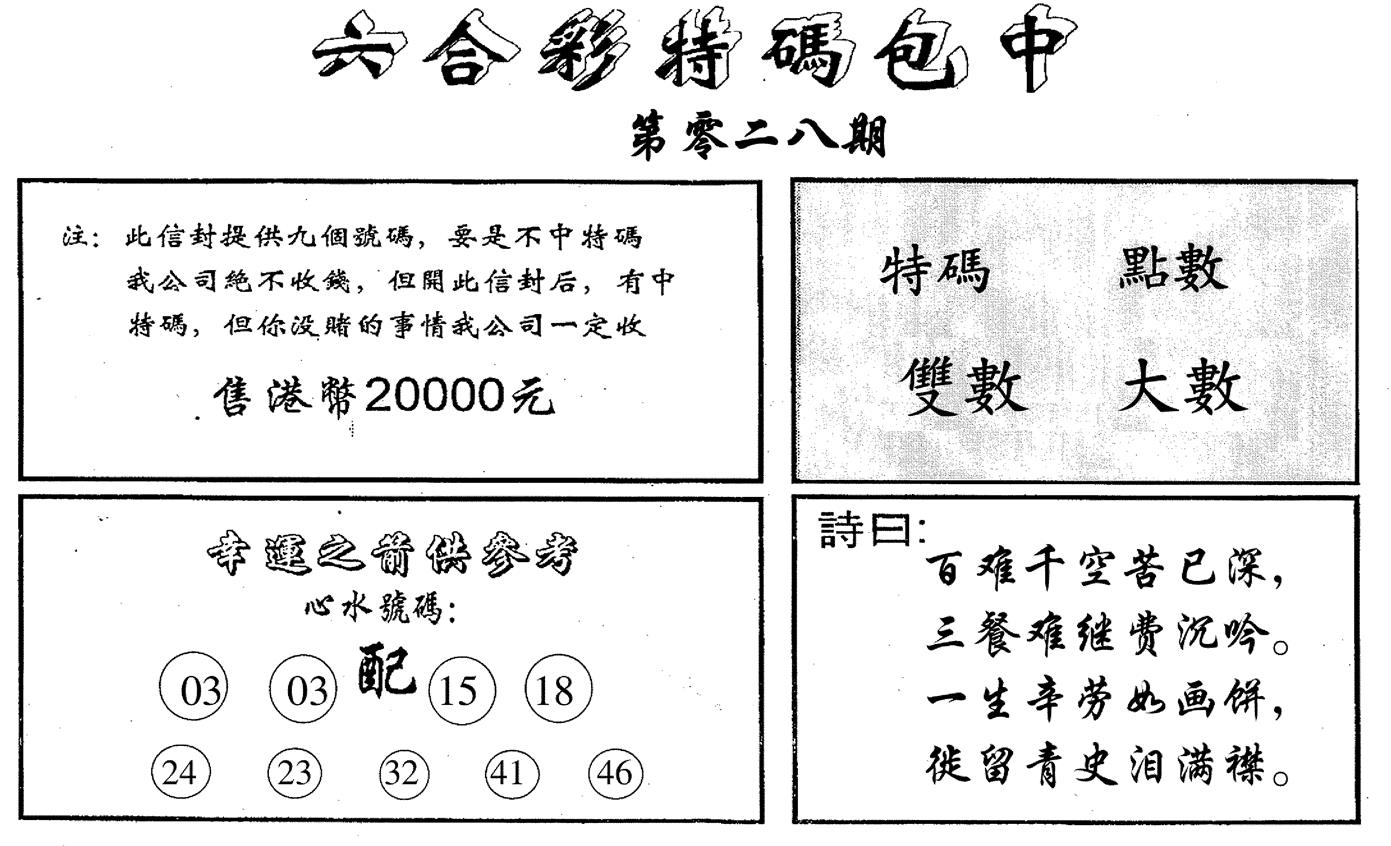 六合彩特碼包中
第零二八期
注：此信封提供九個號碼，要是不中特碼
我公司絕不收錢，但開此信封后，有中
特碼，但你没賭的事情我公司一定收
售港幣20000元
特碼 點數
雙數 大數
幸運之箭供參考
心水號碼：
03 03 配 15 18
24 23 32 41 46
詩曰：
百难千空苦已深，
三餐难继费沉吟。
一生辛劳如画饼，
徙留青史泪满襟。